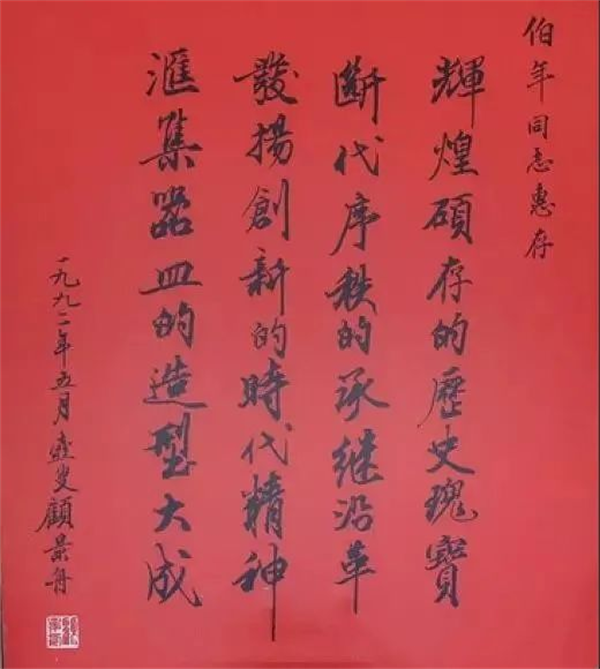 伯年同志惠存
輝煌碩存的歷史瑰寶
斷代序秩的承继沿革
發揚創新的時代精神
滙集器皿的造型大成
一九九二年五月壺叟顧景舟